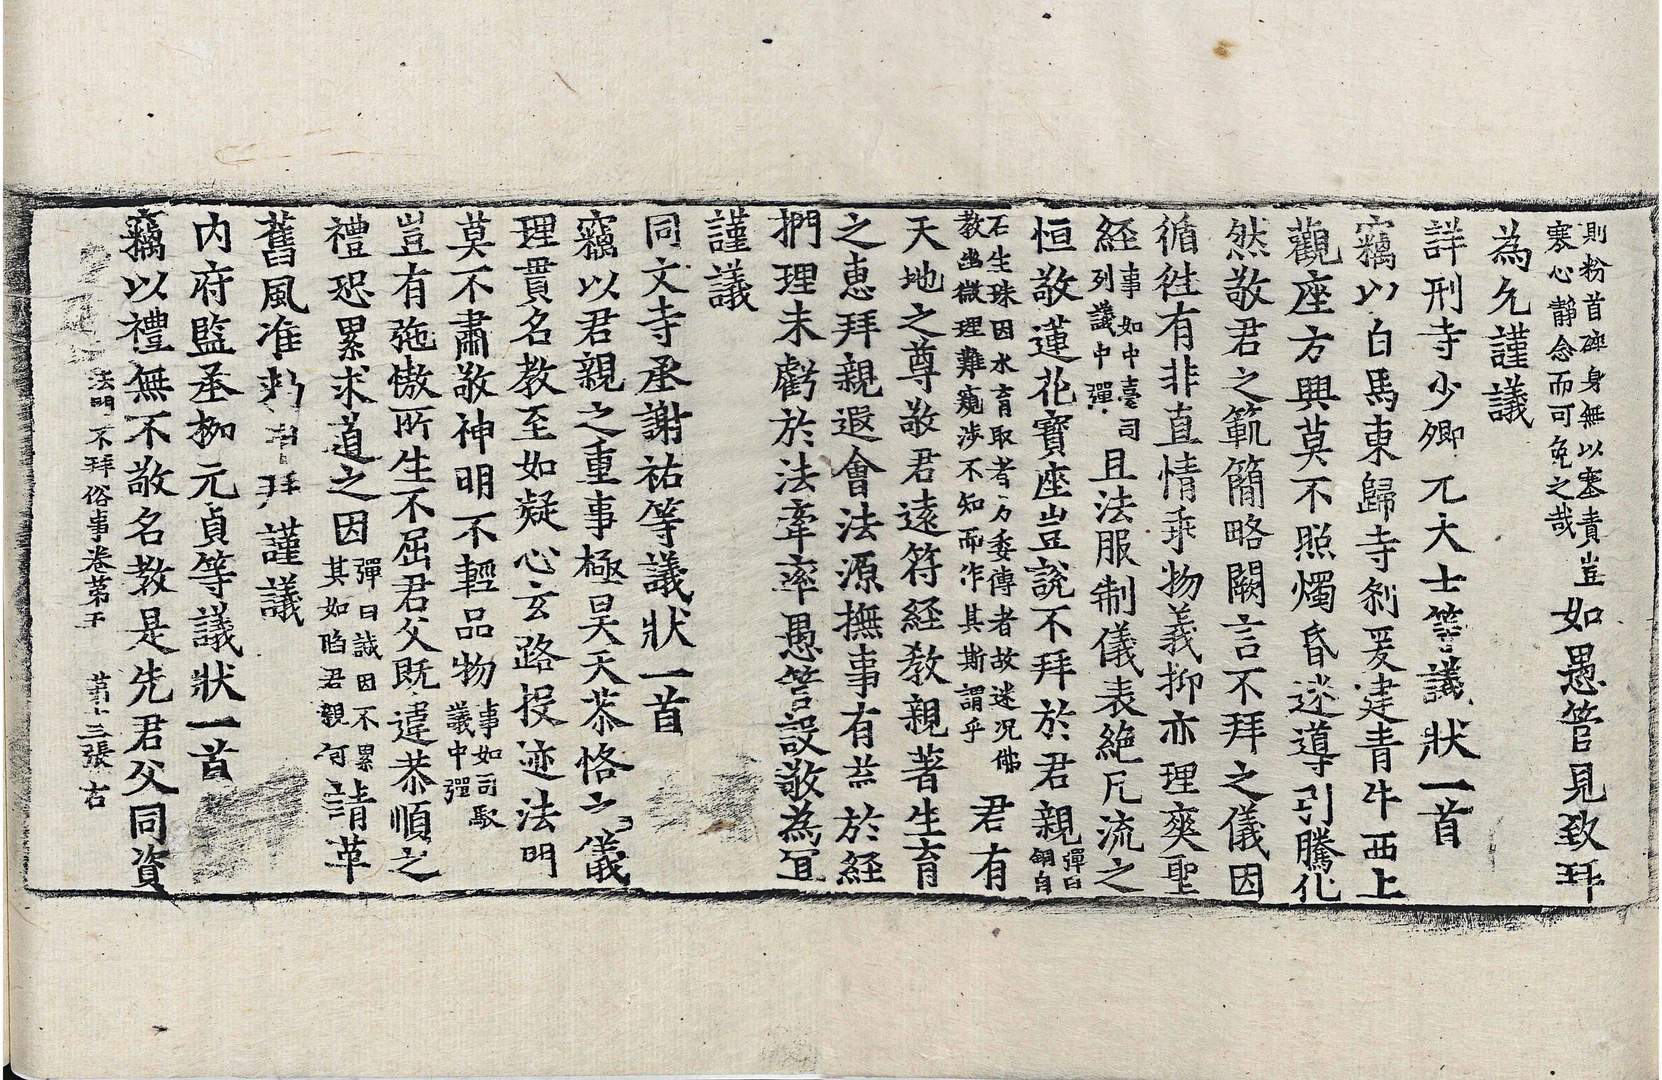 則粉首碎身無以塞責豈
寒心靜念而可免之哉
如愚管見致拜
為允謹議
詳刑寺少卿元大士等議狀一首
竊以白馬東歸寺剎爰建青牛西上
觀座方興莫不照燭昏迷導引騰化
然敬君之範簡略闕言不拜之儀因
循徃有非直情乖物義抑亦理爽聖
経
事如中臺司
列議中彈
且法服制儀表絶凡流之
恒敬蓮花寶座豈説不拜於君親
彈曰
銅自
石生珠因水育取者方委傳者故迷况佛
教幽微理難窺渉不知而作其斯謂乎
君有
天地之尊敬君遠符経教親著生育
之恵拜親遐會法源撫事有益於経
捫理未虧於法牽率愚管設敬為冝
謹議
同文寺承謝祐等議狀一首
竊以君親之重事極昊天恭恪之儀
理貫名教至如凝心玄路投迹法明
莫不肅敬神明不輕品物
事如司馭
議中彈
豈有弛慠所生不屈君父既違恭順之
禮恐累求道之因
彈曰誠因不累
其如陷君親何
請革
舊風准 拜謹議
内府監丞柳元貞等議狀一首
法明不拜俗事卷第 第十三張 右
竊以禮無不敬名教是先君父同資